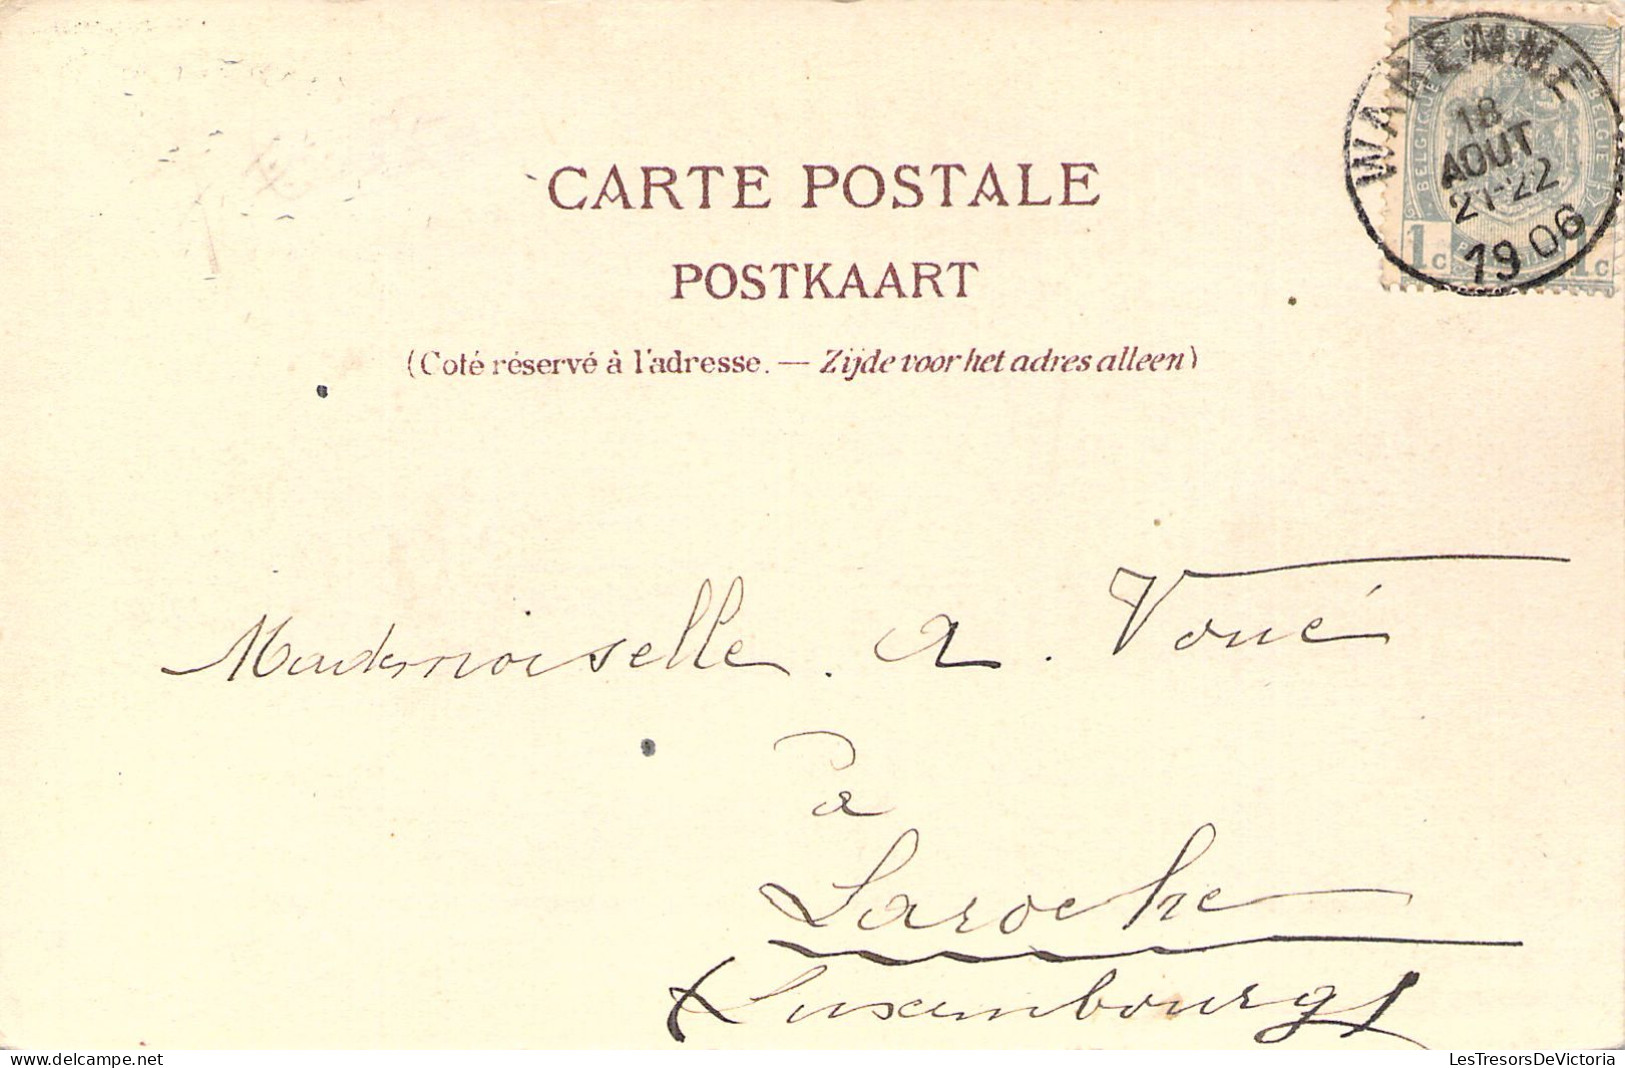 WAREMME
18
AOUT
21-22
1906
BELGIQUE
BELGIE
1c
1c
CARTE POSTALE
POSTKAART
(Coté réservé à l'adresse. — Zijde voor het adres alleen)
Mademoiselle . A . Voué
à
Laroche
(Luxembourg)
LesTresorsDeVictoria
www.delcampe.net